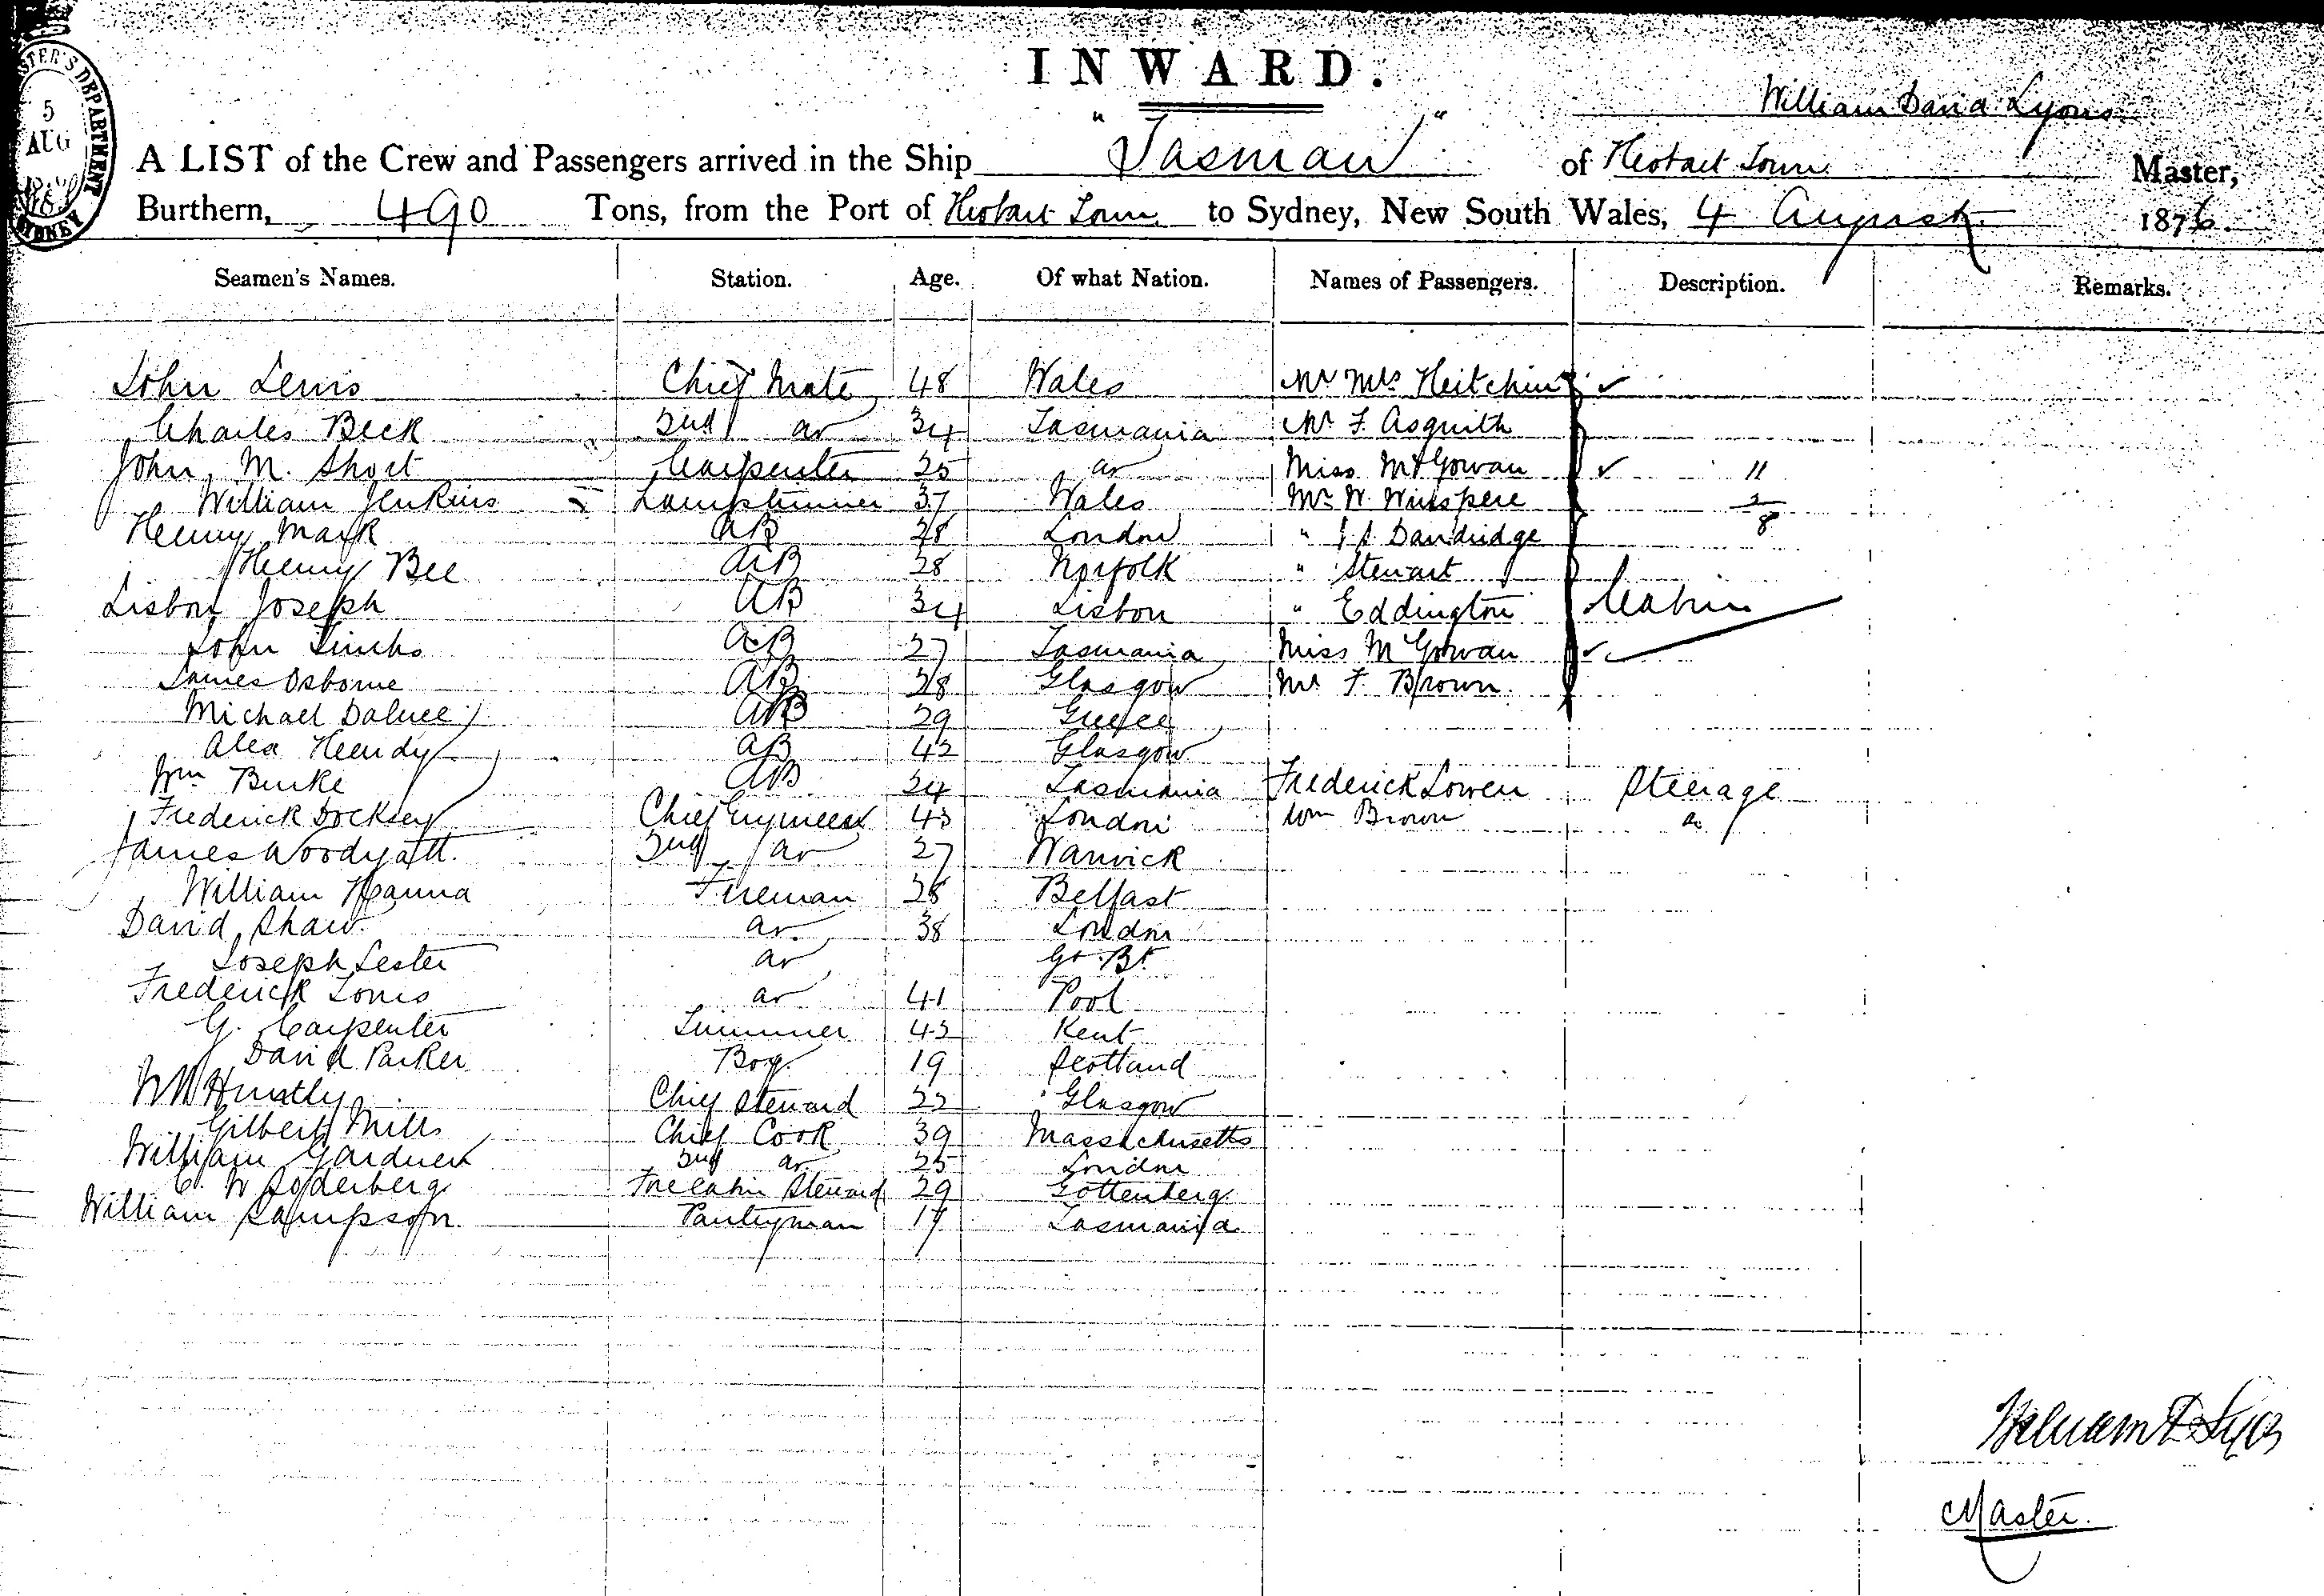 INWARD.
STER'S DEPARTMENT
5
AUG
SYDNEY
William David Lyons
A LIST of the Crew and Passengers arrived in the Ship "Tasman" of Hobart Town Master,
Burthern, 490 Tons, from the Port of Hobart Town to Sydney, New South Wales, 4 August 1876.
Seamen's Names. Station. Age. Of what Nation. Names of Passengers. Description. Remarks.
John Lewis Chief Mate 48 Wales Mr Mrs Heitchin ✓
Charles Beck 2nd do 34 Tasmania Mr F. Asquith
John M. Short Carpenter 25 do Miss McGowan ✓ 11
William Jenkins Lamptrimmer 37 Wales Mr W. Winspere
Henry Mark AB 28 London " Dandridge 8
Henry Bee AB 28 Norfolk " Stewart
Lisbon Joseph AB 34 Lisbon " Eddington Cabin
John AB 27 Tasmania Miss McGowan ✓
James Osborne AB 28 Glasgow Mr F. Brown
Michael AB 29 Greece
Alex Hendy AB 42 Glasgow
Wm Burke AB 24 Tasmania Frederick Lowen Steerage
Frederick Docksey Chief Engineer 43 London Wm Brown do
James Woodyatt. 2nd do 27 Warwick
William Hanna Fireman 28 Belfast
David Shaw do 38 London
Joseph Lester do Gt Bt
Frederick Louis do 41 Pool
G. Carpenter Trimmer 42 Kent
David Parker Boy 19 Scotland
Huntly Chief Steward 32 Glasgow
Gilbert Mills Chief Cook 39 Massachusetts
William Gardner 2nd do 25 London
C W Soderberg Forecabin Steward 29 Gottenberg
William Sampson Pantryman 17 Tasmania
William D Lyons
Master.